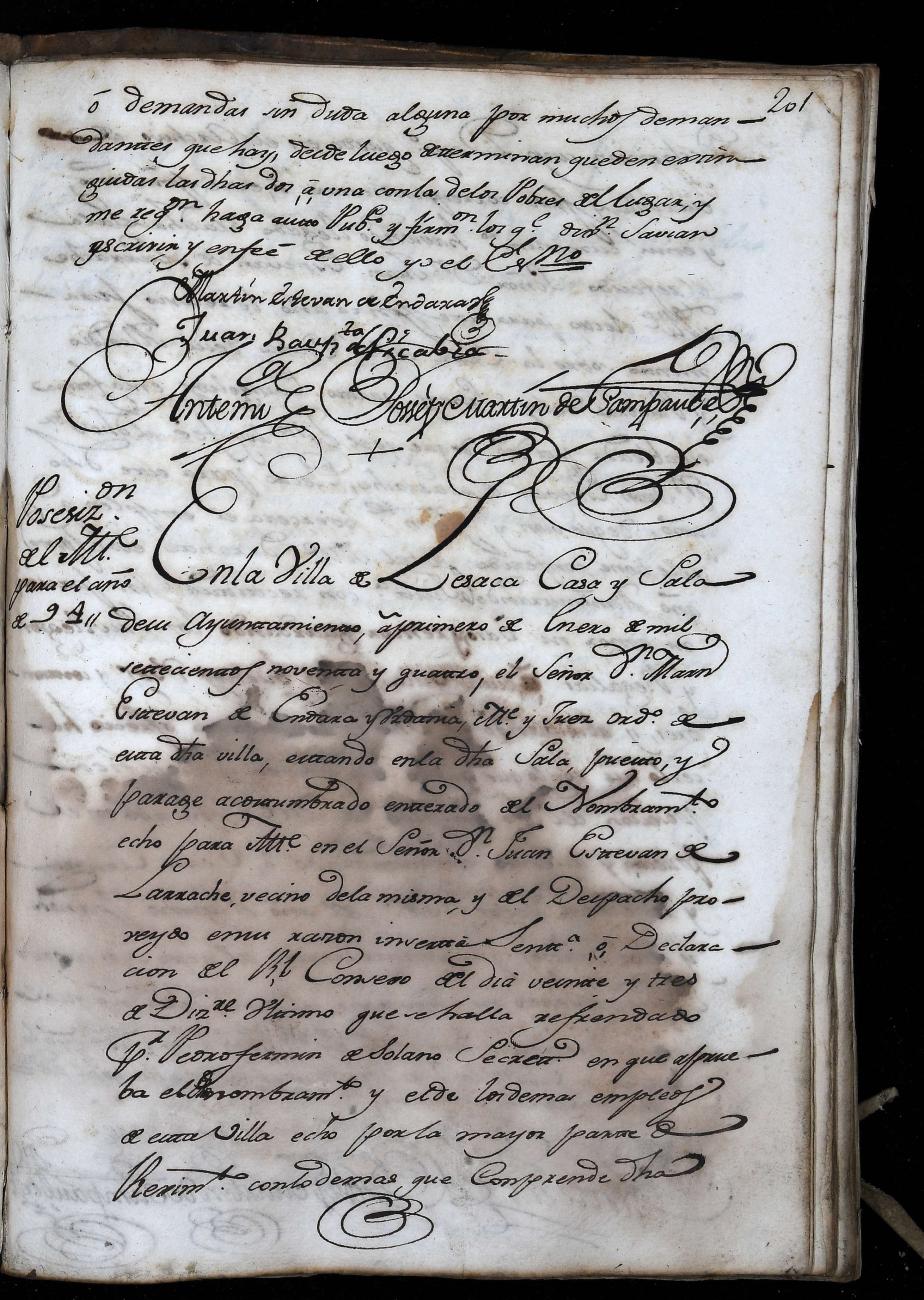 201
ó demandas sin duda alguna por muchos deman-
dantes que hay, desde luego determinan queden extin-
guidas las dhas dos, â una con la de los Pobres del lugar, y
me reqn. haga auto Pubco. y firmon. los qe. dixn. Savian
escrivir, y en feé de ello yo el Esno
Martin Estevan de Endara
Juan Baupta de Picabea
Antemi Joseph Martin de Sampaul
Posesizon
del Alle.
para el año
de 94
En la Villa de Lesaca Casa y Sala
de su Ayuntamiento, â primero de Enero de mil
setecientos noventa y quattro, el Señor Dn. Martn
Estevan de Endara y Vrdania, Alle. y Juez ordo. de
esta dha villa, estando en la dha Sala, puesto, y
parage acostumbrado enterado del Nombramto
echo para Alle. en el Señor Dn. Juan Estevan de
Larrache, vecino de la misma, y del Despacho pro-
veydo en su razon inserta Senta. ó Declara-
cion del Rl Consejo del diâ veinte y tres
de Dizre. Vltimo que se halla refrendado
pr. Pedro fermin de Solano Secreto. en que aprue-
ba el nombramto. y el de los demas empleos
de esta Villa echo por la mayor parte de
Rexim.to con lo demas que Comprende dha